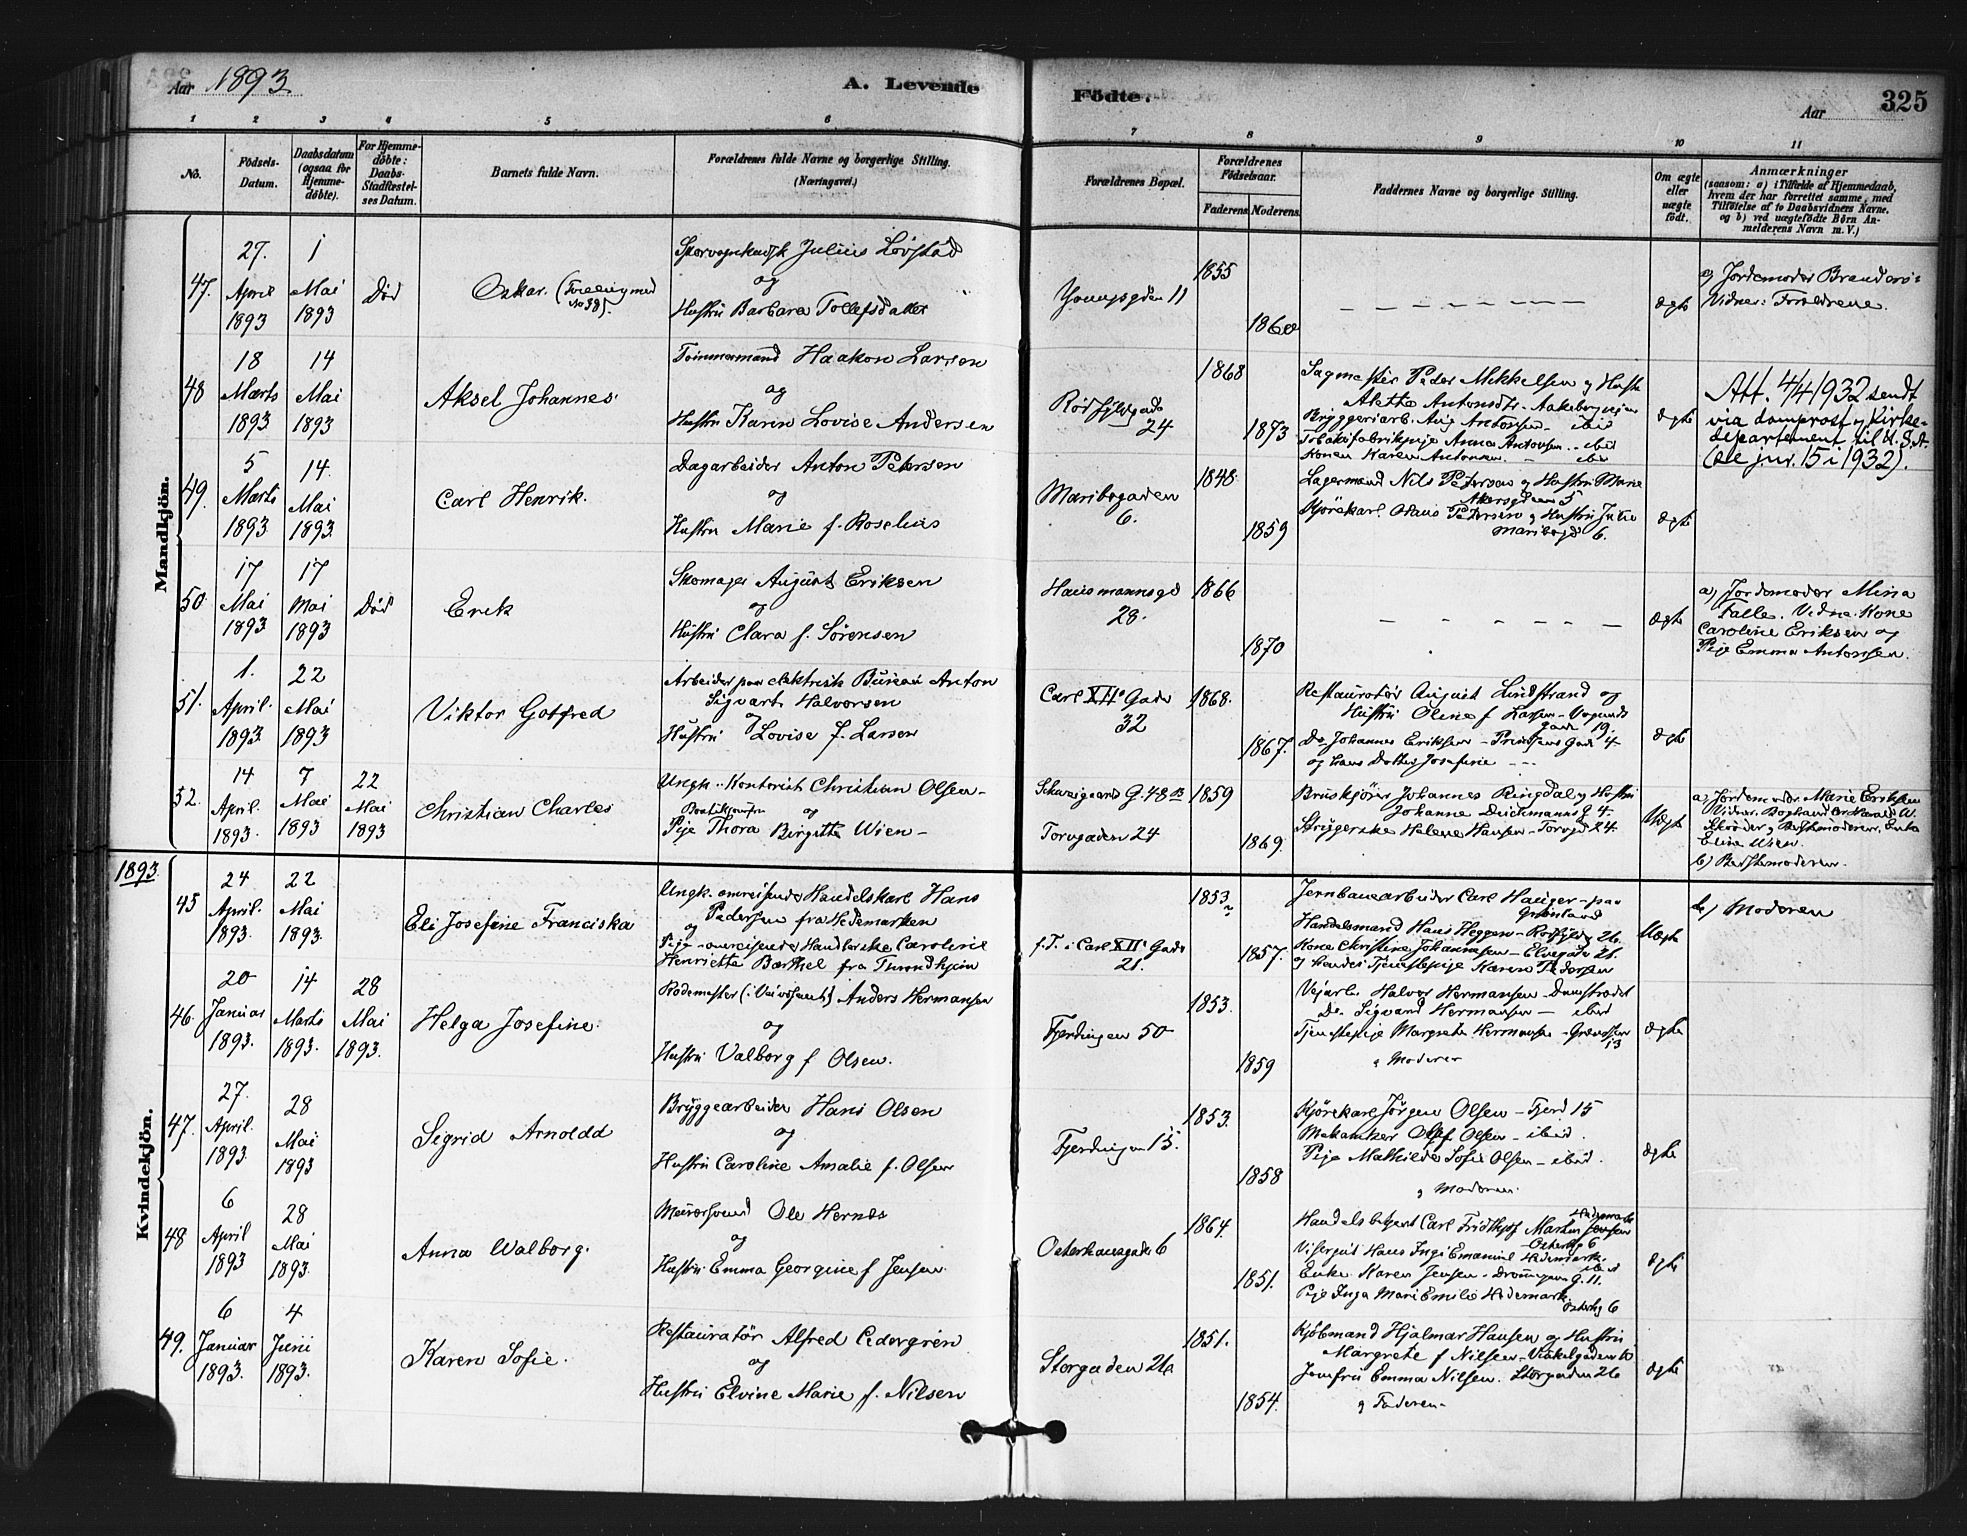 Aar 1893.
A. Levende
Födte.
Aar
325
1 2 3 4 5 6 7 8 9 10 11
No.
Födsels-
Datum.
Daabsdatum
(ogsaa for
Hjemme-
døbte).
For Hjemme-
døbte:
Daabs-
Stadfæstel-
ses Datum.
Barnets fulde Navn.
Forældrenes fulde Navne og borgerlige Stilling.
(Næringsvei.)
Forældrenes Bopæl.
Forældrenes
Fødselsaar.
Faderens. Moderens.
Faddernes Navne og borgerlige Stilling.
Om ægte
eller
uægte
født.
Anmærkninger
(saasom: a) i Tilfælde af Hjemmedaab,
hvem der har forrettet samme, med
Tilføielse af to Daabsvidners Navne.
og b) ved uægtefødte Børn An-
melderens Navn m. V.)
Mandkjön.
47.
27.
April
1893
1
Mai
1893
Død
Oskar. (Tvilling med
No 38).
Julius Løvstad
og
Hustru Barbara Tollefsdatter
11
1855
1860
ægte
a) Jordemoder
Vidner: Forældrene.
48
18
Marts
1893
14
Mai
1893
Aksel Johannes
Tømmermand Haakon Larsen
og
Hustru Karen Lovise Andersen
24
1868
1873
Sagmester Peder Mikkelsen og Hustru
Bryggeriarb. Aug Antonsen - ibid
Anna Antonsen - ibid
Konen Karen Antonsen - ibid
ægte
Att. 4/4 1932 sendt
via domprost og Kirke-
departement til U.S.A.
(se jnr. 15 i 1932).
49.
5
Marts
1893
14.
Mai
1893.
Carl Henrik.
Dagarbeider Anton Petersen
og
Hustru Marie f. Roselius
Maribogaden
6.
1848.
1859
Lagermand Nils Petersen og Hustru Marie
Akersgaden 5
Kjørekarl Hans Petersen og Hustru
Maribogd 6.
ægte
50
17
Mai
1893
17
Mai
1893
Død
Erik
Skomager August Eriksen
og
Hustru Clara f. Sørensen
Hausmannsgd
28.
1866
1870
ægte
a) Jordemoder Mina
Falle. Vidne: Kone
Caroline Eriksen og
Pige Emma Antonsen.
51.
1.
April.
1893.
22
Mai
1893
Viktor Gotfred
Arbeider paa elektrisk Bureau Anton
Sigvart Halvorsen
og
Hustru Lovise f. Larsen
Carl XII's Gade
32
1868.
1867.
Restauratør August Lindstrand og
Hustru Oline f Larsen -
Gade 19.
Do. Johannes Eriksen - Prinsens Gade 4
og hans Datter Josefine
ægte
52.
14
April.
1893.
7
Mai
1893
22
Mai
1893
Christian Charles
Ungk. Kontorist Christian Olsen -
og
Pige Thora Birgitte Wien -
Schweigaards G. 48 B
Torvgaden 24
1859
1869.
Bruskjører Johannes Ringdal og Hustru
Johanne Deichmanns G 4.
Strygerske Helene Hansen - Torvgd 24
Uægte
a) Jordemoder Marie Eriksen
Elise Wien.
b) Bedstemoderen.
1893
Kvindekjön.
45
24
April.
1893.
22
Mai
1893.
Eli Josefine Franciska
Ungk. omreisende Handelskarl Hans
Pedersen fra Hedemarken
og
Pige - omreisende Handlerske Caroline
Henriette Barthel fra Trondhjem
f.T. i Carl XII's Gade
21.
1853
1857.
Jernbanearbeider Carl Hauger - paa
Grønland
Handelsmand Hans Heggen - 26.
Kone Christine Johannesen - Elvegade 21.
og hendes Tjenestepige Karen Pedersen
Uægte
b) Moderen
46.
20
Januar
1893.
14
Marts
1893.
28
Mai
1893.
Helga Josefine.
Rodemester Anders Hermansen
og
Hustru Valborg f Olsen.
Fjerdingen 50
1853.
1859
Vejarb. Halvor Hermansen -
Do. Sigvard Hermansen - ibid
Tjenestepige Margrete Hermansen -
13
og Moderen
ægte
47.
27.
April.
1893.
28
Mai
1893
Sigrid Arnoldd
Bryggearbeider Hans Olsen
og
Hustru Caroline Amalie f. Olsen
Fjerdingen 15.
1853.
1858
Kjørekarl Jørgen Olsen - Fjerd 15
Mekaniker Olaf Olsen - ibid.
Pige Mathilde Sofie Olsen - ibid.
og Moderen.
ægte
48
6
April
1893
28
Mai
1893.
Anna Walborg.
Murersvend Ole Hernes
og
Hustru Emma Georgine f Jensen
Osterhausgade 6
1864.
1851.
Handelsbetjent Carl Fridthjof Martin Jensen
Hedemark
Osterhg 6
Visergut Hans Inge Emanuel Hedemark
ibid
Enke Karen Jensen - G. 11.
Pige Inga Marie Emilie Hedemark
Osterhg 6
ægte
49.
6
Januar
1893.
4
Juni
1893.
Karen Sofie.
Restauratør Alfred Cedergren
og
Hustru Elvine Marie f. Nilsen
Storgaden 26
1851.
1854.
Kjøbmand Hjalmar Hansen og Hustru
Margrete f Nilsen - Vinkelgaden 10
Jomfru Emma Nilsen. Storgaden 26
og Faderen -
ægte